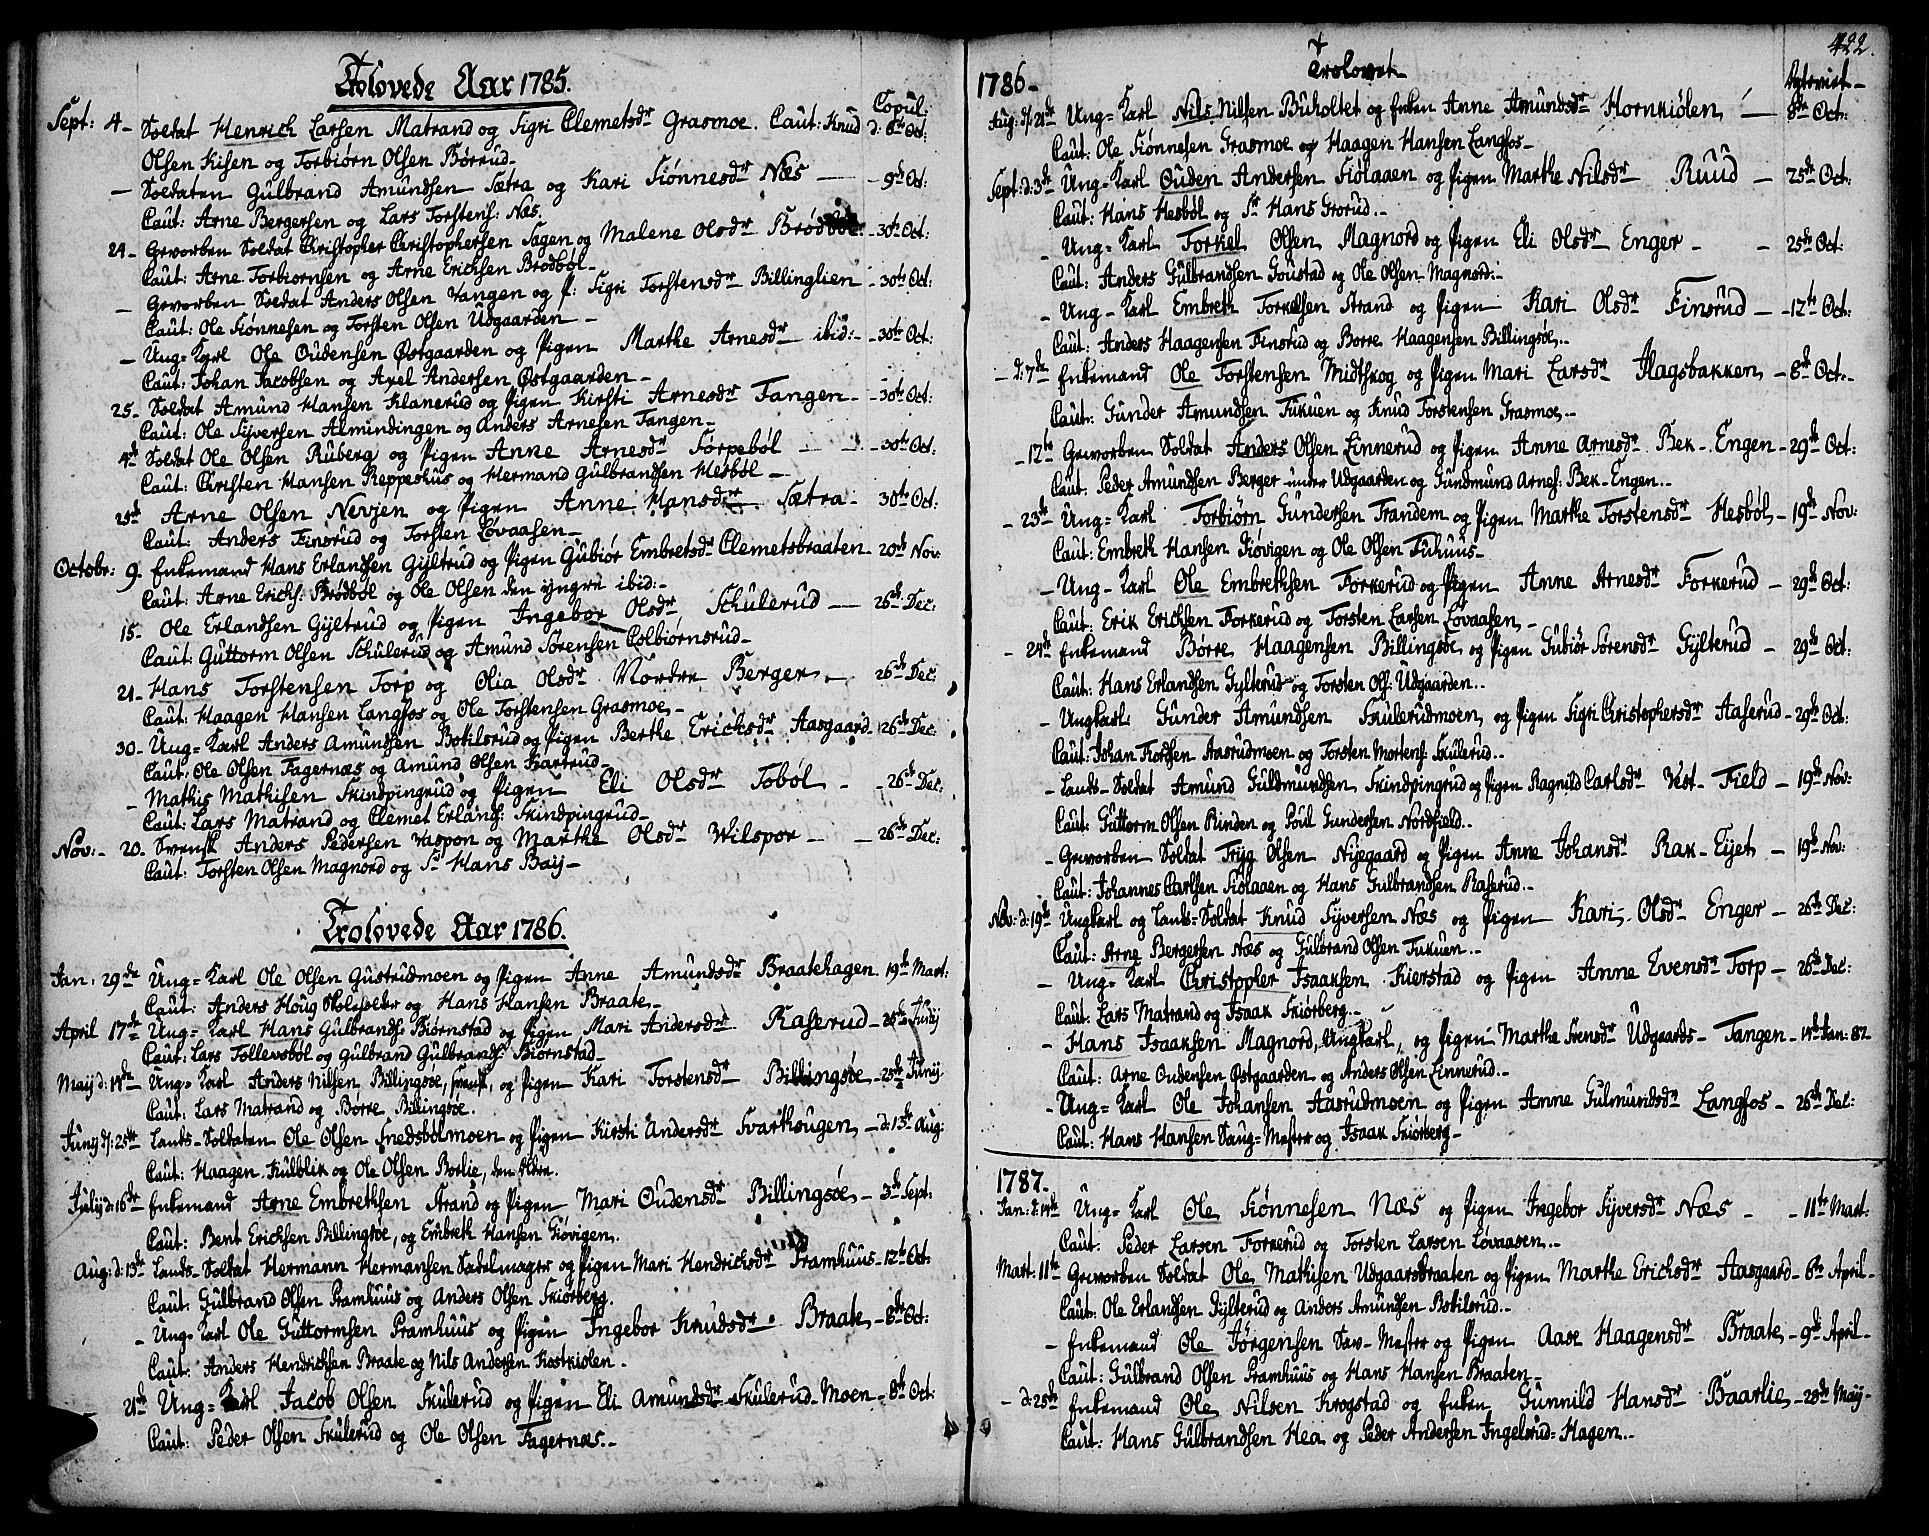 Trolovede Aar 1785.
Copul:
Sept: 4 - Soldat Henrich Larsen Matrand og Sigri Clemetsdr Grasmoe. Caut: Knud d: 6te Oct:
Olsen Kisen og Torbiørn Olsen Børrud -
- Soldaten Gulbrand Amundsen Sætra og Kari Siønnesdr Næs - 9de Oct:
Caut: Arne Bergersen og Lars Torstens: Næs.
24 - Geworben Soldat Christopher Christophersen Sagen og Malene Olsdr Brødbøl - 30te Oct:
Caut: Arne Torbiornsen og Arne Erichsen Brødbøl -
- Geworben Soldat Anders Olsen Vangen og P: Sigri Torstensdr Billinglien - 30te Oct:
Caut: Ole Siønnesen og Torsten Olsen Udgaarden -
- Ung-Karl Ole Oudensen Østgaarden og Pigen Marthe Arnesdr ibid: - 30te Oct:
Caut: Johan Jacobsen og Axel Andersen Østgaarden -
25 - Soldat Amund Hansen Klanerud og Pigen Kirsti Arnesdr Tangen - 30te Oct:
Caut: Ole Syversen Almindingen og Anders Arnesen Tangen -
4de Soldat Ole Olsen Ruberg og Pigen Anne Arnesdr Torpebøl - 30te Oct:
Caut: Christen Hansen Reppeshus og Hermand Gulbrandsen Hesbøl -
25de Arne Olsen Nevjen og Pigen Anne Hansdr Sætra - 30te Oct:
Caut: Anders Finsrud og Torsten Løvaasen -
Octobr: 9. Enkemand Hans Erlandsen Gyltrud og Pigen Gubiør Embretsdr Clemetsbraaten - 20de Nov:
Caut: Arne Erichs: Brødbøl og Ole Olsen den yngre ibid: -
15 - Ole Erlandsen Gyltrud og Pigen Ingebor Olsdr Schulerud - 26de Dec:
Caut: Guttorm Olsen Schulerud og Amund Sørensen Colbiørnsrud -
21 - Hans Torstensen Torp og Olia Olsdr Nordre Berger - 26de Dec:
Caut: Haagen Hansen Langfos og Ole Torstensen Grasmoe -
30 - Ung-Karl Anders Amundsen Botilsrud og Pigen Berthe Erichsdr Aasgaard 26de Dec:
Caut: Ole Olsen Fagernæs og Amund Olsen Svartrud -
- Mathis Mathisen Skindpingrud og Pigen Eli Olsdr Tobøl - 26de Dec:
Caut: Lars Matrand og Clemet Erlands: Skindpingrud -
Nov: - 20. Svensk Anders Pedersen Vaspon og Marthe Olsdr Wilspor - 26de Dec:
Caut: Torsten Olsen Magnord og Sr Hans Baij -
Trolovede Aar 1786.
Jan: 29de Ung-Karl Ole Olsen Gustrudmoen og Pigen Anne Amundsdr Braatehagen 19de Mart:
Caut: Anders Houg Skolholder og Hans Hansen Braate -
April 17de Ung-Karl Hans Gulbrands: Biørnstad og Pigen Mari Andersdr Kaserud - 25de Junij
Caut: Lars Tollevsbøl og Gulbrand Gulbrands: Biørnstad -
Maij d: 14de Ung-Karl Anders Nilsen Billingsøe, svensk, og Pigen Kari Torstensdr Billingsøe - 25de Junij
Caut: Lars Matrand og Børre Billingsøe.
Junij d: 25de Lands-Soldaten Ole Olsen Snedsbølmoen og Pigen Kirsti Andersdr Svarthougen - d: 13de Aug:
Caut: Haagen Skulblik og Ole Olsen Borlie, den Eldre.
Julij d: 16de Enkemand Arne Embrethsen Strand og Pigen Mari Oudensdr Billingsøe - 3de Sept:
Caut: Bent Erichsen Billingsøe, og Embreth Hansen Giøvigen.
Aug: d: 13de Lands-Soldat Hermann Hermansen Sadelmager og Pigen Mari Hendrichsdr Framhuus - 12te Oct:
Caut: Gulbrand Olsen Framhuus og Anders Olsen Skiørberg.
- Ung-Karl Ole Guttormsen Framhuus og Pigen Ingebor Knudsdr Braate - 8de Oct:
Caut: Anders Hendrichsen Braate og Nils Andersen Kostkiølen -
21de Ung-Karl Jacob Olsen Skulerud og Pigen Eli Amundsdr Skulerud-Moen - 8de Oct:
Caut: Peder Olsen Skulerud og Ole Olsen Fagernæs -
422.
1786 - Trolovet
Aug: d: 21de Ung-Karl Nils Nilsen Buholtet og Enken Anne Amundsdr Hornkiølen - 8de Oct:
Caut: Ole Siønnesen Grasmoe og Haagen Hansen Langfos -
Sept: d: 3de Ung-Karl Ouden Andersen Fiølaaen og Pigen Marthe Nilsdr Ruud - 25de Oct:
Caut: Hans Hesbøl og Sr Hans Grorud -
- Ung-Karl Torkel Olsen Magnord og Pigen Eli Olsdr Enger - 25de Oct:
Caut: Anders Gulbrandsen Goustad og Ole Olsen Magnord -
- Ung-Karl Embreth Torkelsen Strand og Pigen Kari Olsdr Finsrud - 12te Oct:
Caut: Anders Haagensen Finsrud og Børre Haagensen Billingsøe -
- d: 7de Enkemand Ole Torstensen Midtskog og Pigen Mari Larsdr Flagsbakken - 8de Oct: -
Caut: Gunder Amundsen Tukuen og Knud Torstensen Grasmoe -
- 17te Geworben Soldat Anders Olsen Linnerud og Pigen Anne Arnesdr Bek-Engen - 29de Oct:
Caut: Peder Amundsen Berger under Udgaarden og Gundmund Arnes: Bek-Engen -
- 23de Ung-Karl Torbiørn Gundersen Trandem og Pigen Marthe Torstensdr Hesbøl - 19de Nov:
Caut: Embreth Hansen Giøvigen og Ole Olsen Tuhuus -
- Ung-Karl Ole Embrethsen Torkerud og Pigen Anne Arnesdr Torkerud - 29de Oct:
Caut: Erik Erichsen Torkerud og Torsten Larsen Løvaasen -
- 24de Enkemand Børre Haagensen Billingsøe og Pigen Gubiør Sørensdr Gylterud - 29de Oct:
Caut: Hans Erlandsen Gylterud og Torsten Ols: Udgaarden -
- Ungkarl Gunder Amundsen Skulerudmoen og Pigen Sigri Christophersdr Aaserud - 29de Oct:
Caut: Johan Thordsen Aasrudmoen og Torsten Mortens: Skulerud -
- Lands-Soldat Amund Guldmundsen Skindpingrud og Pigen Ragnild Carlsdr Vest-Field - 19de Nov:
Caut: Guttorm Olsen Rinden og Poul Gundersen Nordfield -
- Geworben Soldat Tryg Olsen Nyegaard og Pigen Anne Johansdr Rak-Eijet - 19de Nov:
Caut: Johannes Carlsen Fiølaaen og Hans Gulbrandsen Kaserud -
Nov: d: 19de Ungkarl og Lands-Soldat Knud Syversen Næs og Pigen Kari Olsdr Enger - 26de Dec:
Caut: Arne Bergersen Næs og Gulbrand Olsen Tukuen -
- Ung-Karl Christopher Isaaksen Kierstad og Pigen Anne Evensdr Torp - 26de Dec:
Caut: Lars Matrand og Isaak Skiørberg -
- Hans Isaaksen Magnord, Ungkarl, og Pigen Marthe Svensdr Udgaards-Tangen - 14de Jan: 87.
Caut: Arne Oudensen Østgaarden og Anders Olsen Linnerud -
- Ung-Karl Ole Johansen Aasrudmoen og Pigen Anne Gulmundsdr Langfos - 26de Dec:
Caut: Hans Hansen Saug-Mester og Isaak Skiørberg -
1787.
Jan: d: 14de Ung-Karl Ole Siønnesen Næs og Pigen Ingebor Syversdr Næs - 11te Mart:
Caut: Peder Larsen Torkerud og Torsten Larsen Løvaasen -
Mart: 11te Geworben Soldat Ole Mathisen Udgaarsbraaten og Pigen Marthe Erichsdr Aasgaard - 6te April -
Caut: Ole Erlandsen Gylterud og Anders Amundsen Botilsrud -
- Enkemand Ole Jørgensen Sav-Mester og Pigen Aase Haagensdr Braate - 9de April -
Caut: Gulbrand Olsen Framhuus og Hans Hansen Braaten -
- d: 25de Enkemand Ole Nilsen Krogstad og Enken Gunnild Hansdr Baarlie - 28de Maij -
Caut: Hans Gulbrandsen Hea og Peder Andersen Ingelsrud-Hagen -